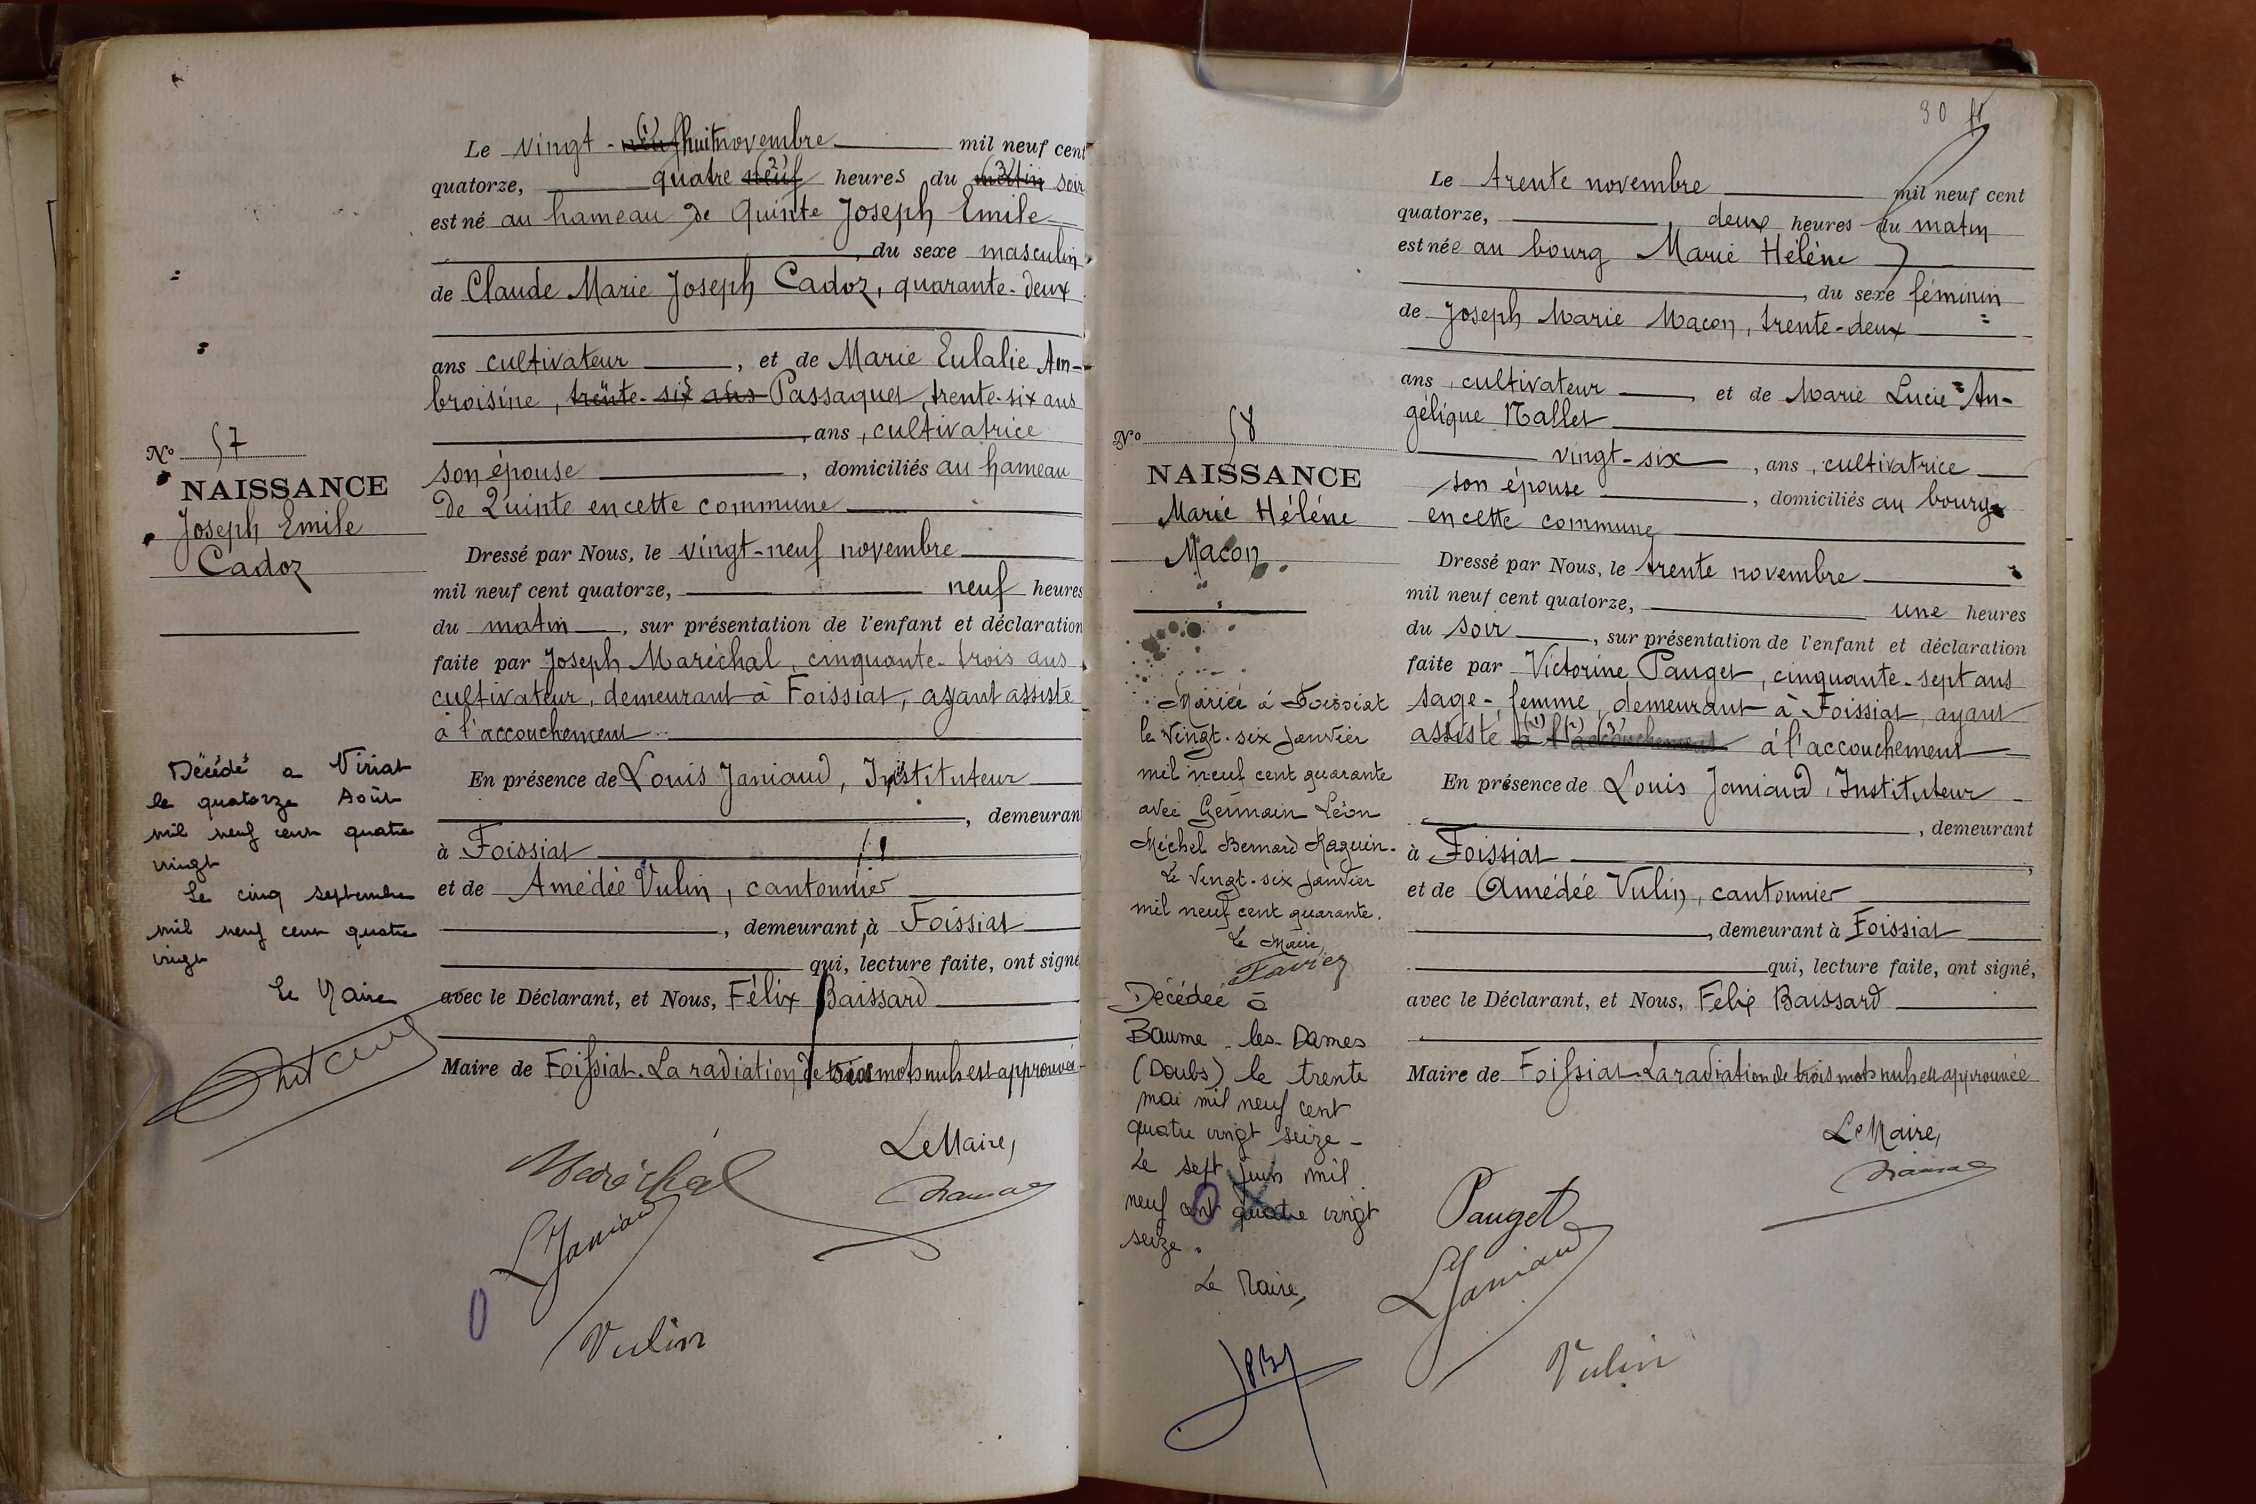 Le vingt - neuf (1) huit novembre mil neuf cent
quatorze, quatre neuf (2) heures du matin (3) soir
est né au hameau de Quinte Joseph Emile
, du sexe masculin
de Claude Marie Joseph Cadoz, quarante-deux
ans cultivateur , et de Marie Eulalie Am-
broisine, trente-six ans Passaquet, trente-six ans
, ans, cultivatrice
son épouse , domiciliés au hameau
de Quinte en cette commune
Dressé par Nous, le vingt-neuf novembre
mil neuf cent quatorze, neuf heures
du matin , sur présentation de l'enfant et déclaration
faite par Joseph Maréchal, cinquante-trois ans
cultivateur, demeurant à Foissiat, ayant assisté
à l'accouchement
En présence de Louis Janiaud, Instituteur
, demeurant
à Foissiat
et de Amédée Vulin, cantonnier
, demeurant à Foissiat
qui, lecture faite, ont signé
avec le Déclarant, et Nous, Félix Baissard
Maire de Foissiat. La radiation de mots nuls est approuvée
Le Maire,
Maréchal
LJaniaud
Vulin
No 57
NAISSANCE
Joseph Emile
Cadoz
Décédé a Viriat
le quatorze Août
mil neuf cent quatre
vingt
Le cinq septembre
mil neuf cent quatre
vingt
Le Maire
30
Le trente novembre mil neuf cent
quatorze, deux heures du matin
est née au bourg Marie Hélène
, du sexe féminin
de Joseph Marie Macon, trente-deux
ans, cultivateur , et de Marie Lucie An-
gélique Mallet
vingt-six , ans, cultivatrice
son épouse , domiciliés au bourg
en cette commune
Dressé par Nous, le trente novembre
mil neuf cent quatorze, une heures
du soir , sur présentation de l'enfant et déclaration
faite par Victorine Pauget, cinquante-sept ans
sage-femme, demeurant à Foissiat, ayant
assisté à (1) l' (2) accouchement (3) à l'accouchement
En présence de Louis Janiaud, Instituteur
, demeurant
à Foissiat
et de Amédée Vulin, cantonnier
, demeurant à Foissiat
qui, lecture faite, ont signé,
avec le Déclarant, et Nous, Félix Baissard
Maire de Foissiat. La radiation de trois mots nuls est approuvée
Le Maire,
Pauget
LJaniaud
Vulin
No 58
NAISSANCE
Marie Hélène
Macon
Mariée à Foissiat
le vingt-six janvier
mil neuf cent quarante
avec Germain Léon
Michel Bernard Raguin.
Le vingt-six janvier
mil neuf cent quarante.
Le Maire,
Favier
Décédée à
Baume-les-Dames
(Doubs) le trente
mai mil neuf cent
quatre vingt seize -
Le sept juin mil
neuf cent quatre vingt
seize.
Le Maire,